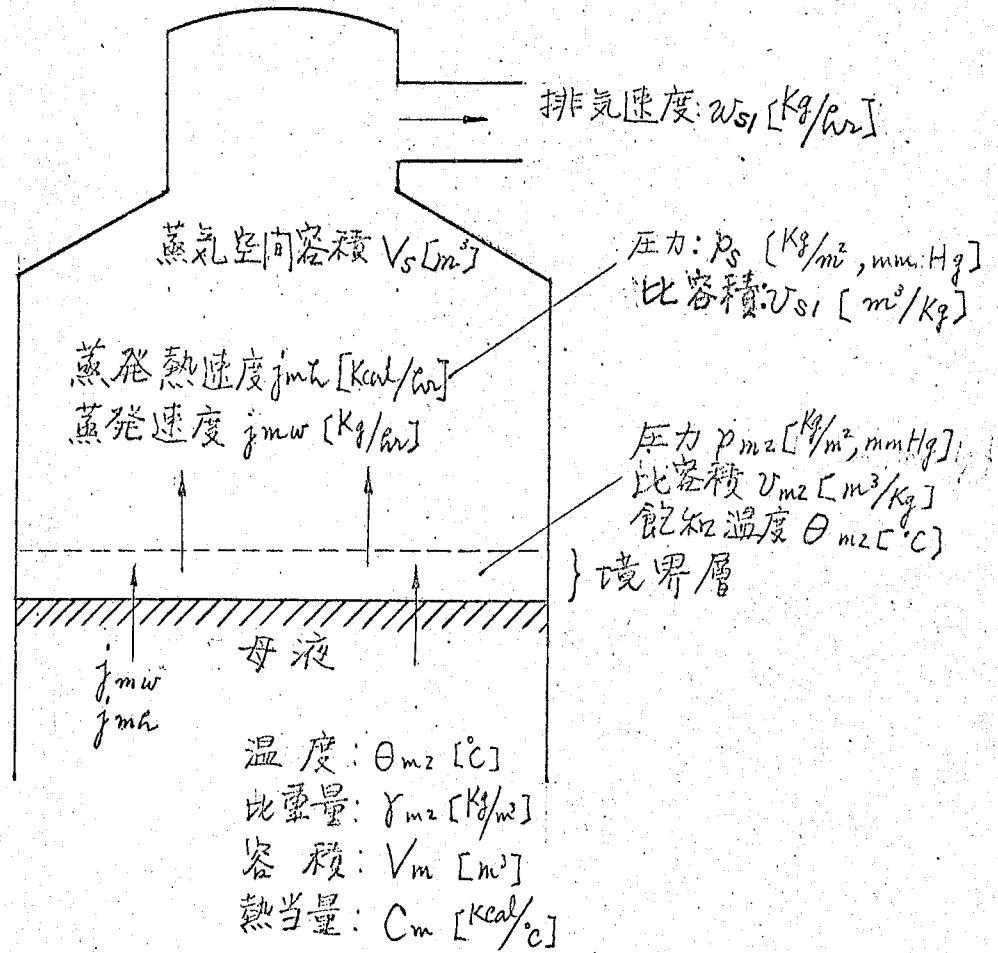 排気速度: w_s1 [Kg/hr]
蒸気空間容積 V_s [m³]
圧力: p_s [Kg/m², mmHg]
比容積: v_s1 [m³/Kg]
蒸発熱速度 j_mh [Kcal/hr]
蒸発速度 j_mw [Kg/hr]
圧力 p_m2 [Kg/m², mmHg]
比容積 v_m2 [m³/Kg]
飽和温度 θ_m2 [°C]
} 境界層
母液
j_mw
j_mh
温度: θ_m2 [°C]
比重量: γ_m2 [Kg/m³]
容積: V_m [m³]
熱当量: C_m [Kcal/°C]